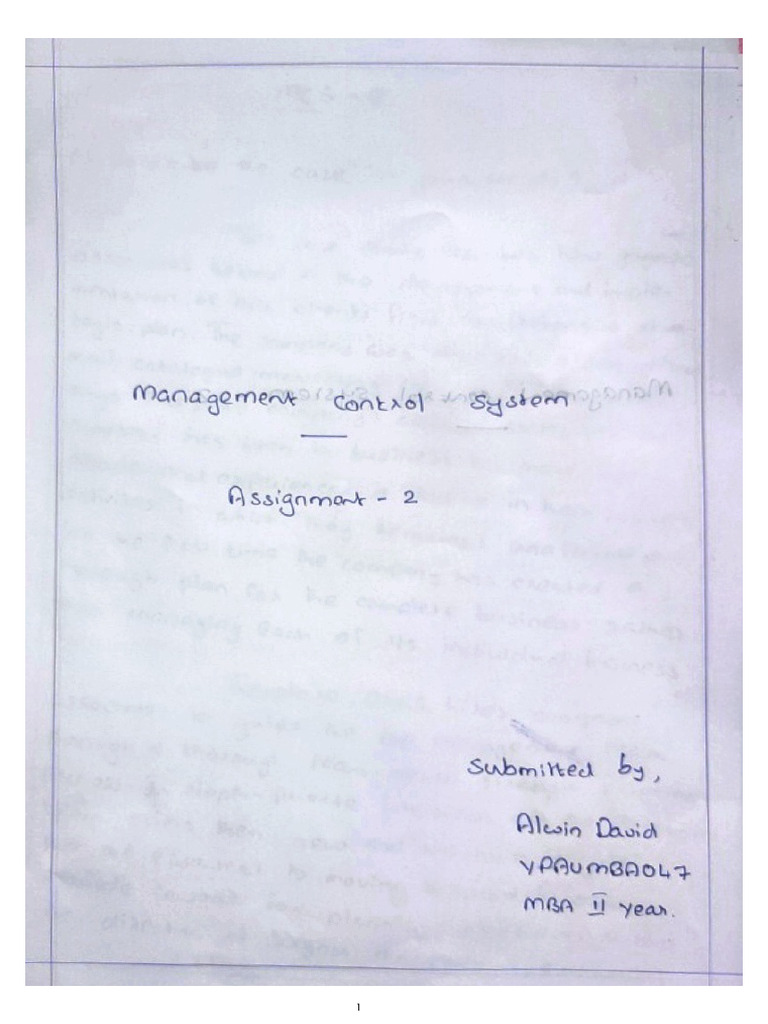 Management Control System
Assignment - 2
Submitted by,
Alwin David
YPAUMBA047
MBA II year.
1